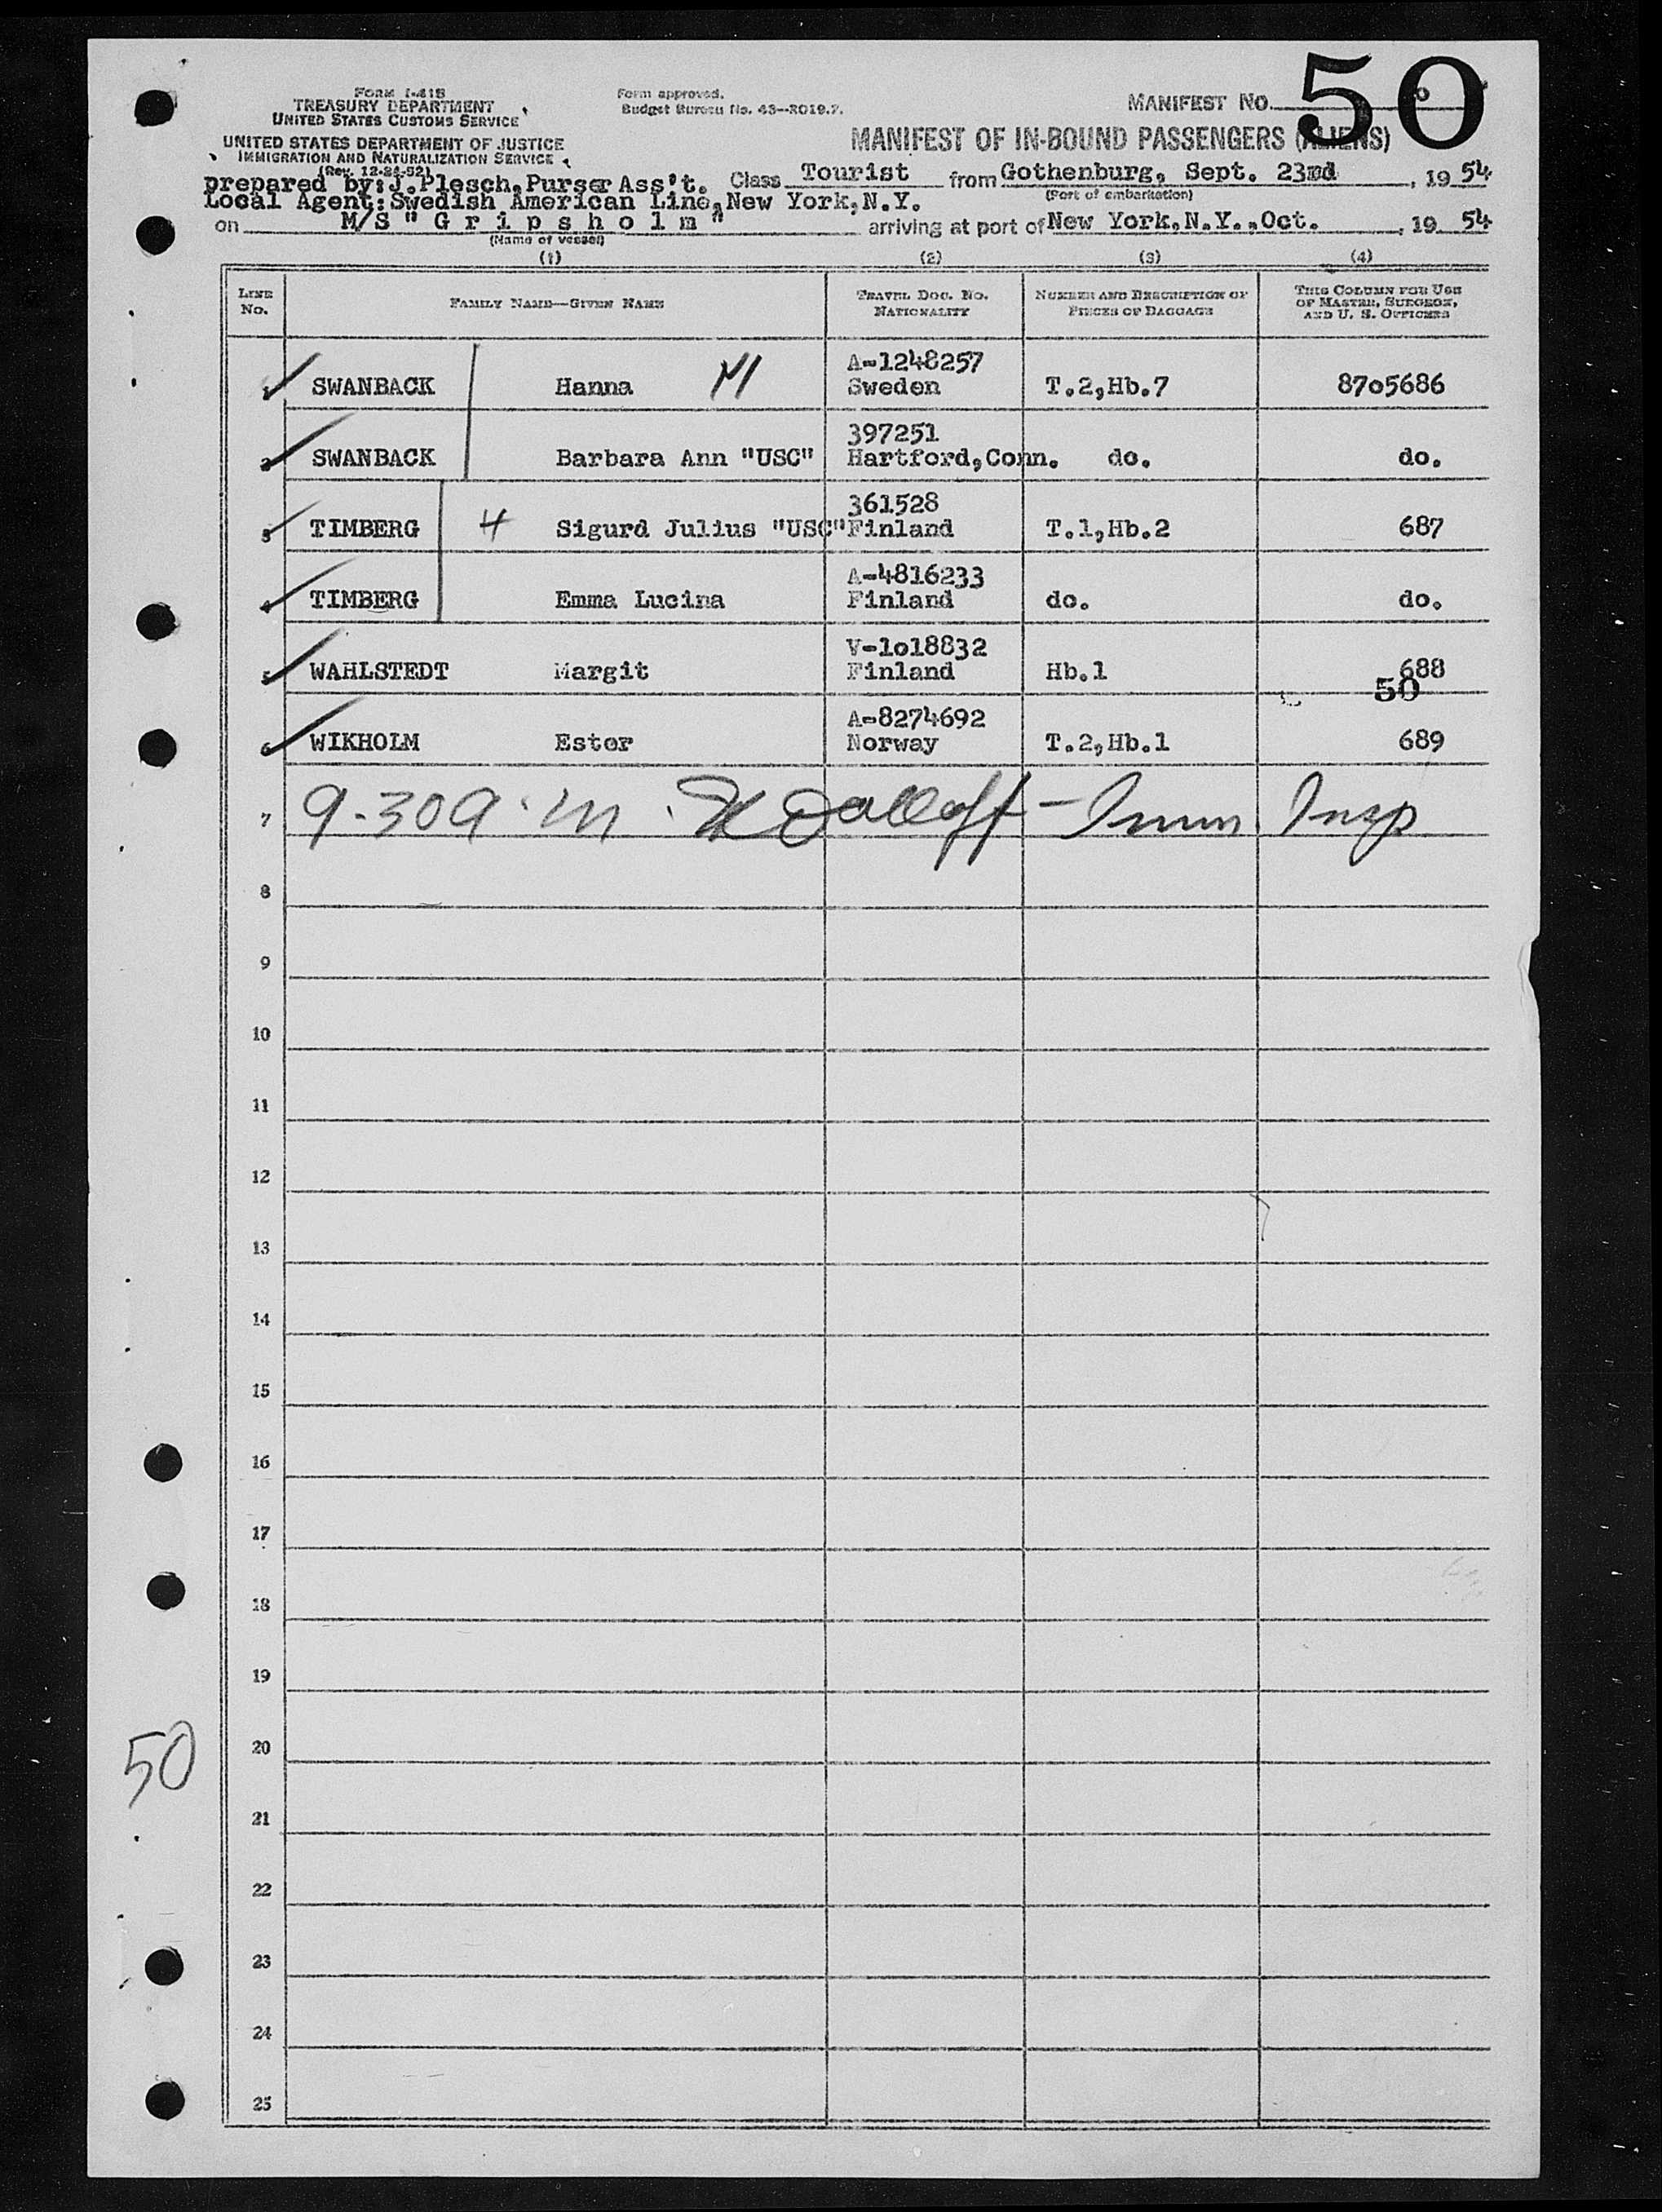 50
FORM I-418
TREASURY DEPARTMENT
UNITED STATES CUSTOMS SERVICE
Form approved.
Budget Bureau No. 43—R019.2.
MANIFEST NO.
UNITED STATES DEPARTMENT OF JUSTICE
IMMIGRATION AND NATURALIZATION SERVICE
(Rev. 12-24-52)
MANIFEST OF IN-BOUND PASSENGERS (ALIENS)
prepared by:J.Plesch,Purser Ass't. Class Tourist from Gothenburg, Sept. 23rd , 19 54
(Port of embarkation)
Local Agent:Swedish American Line,New York,N.Y.
on M/S " G r i p s h o l m " arriving at port of New York,N.Y.,Oct. , 19 54
(Name of vessel)
(1) (2) (3) (4)
LINE NO.
FAMILY NAME—GIVEN NAME
TRAVEL DOC. NO.
NATIONALITY
NUMBER AND DESCRIPTION OF
PIECES OF BAGGAGE
THIS COLUMN FOR USE
OF MASTER, SURGEON,
AND U. S. OFFICERS
A-1248257
1 SWANBACK Hanna Sweden T.2,Hb.7 8705686
397251
2 SWANBACK Barbara Ann "USC" Hartford,Conn. do. do.
361528
3 TIMBERG H Sigurd Julius "USC" Finland T.1,Hb.2 687
A-4816233
4 TIMBERG Emma Lucina Finland do. do.
V-1o18832
5 WAHLSTEDT Margit Finland Hb.1 688
50
A-8274692
6 WIKHOLM Ester Norway T.2,Hb.1 689
7 9-30 a.m. - Imm Insp
8
9
10
11
12
13
14
15
16
17
18
19
20
50
21
22
23
24
25